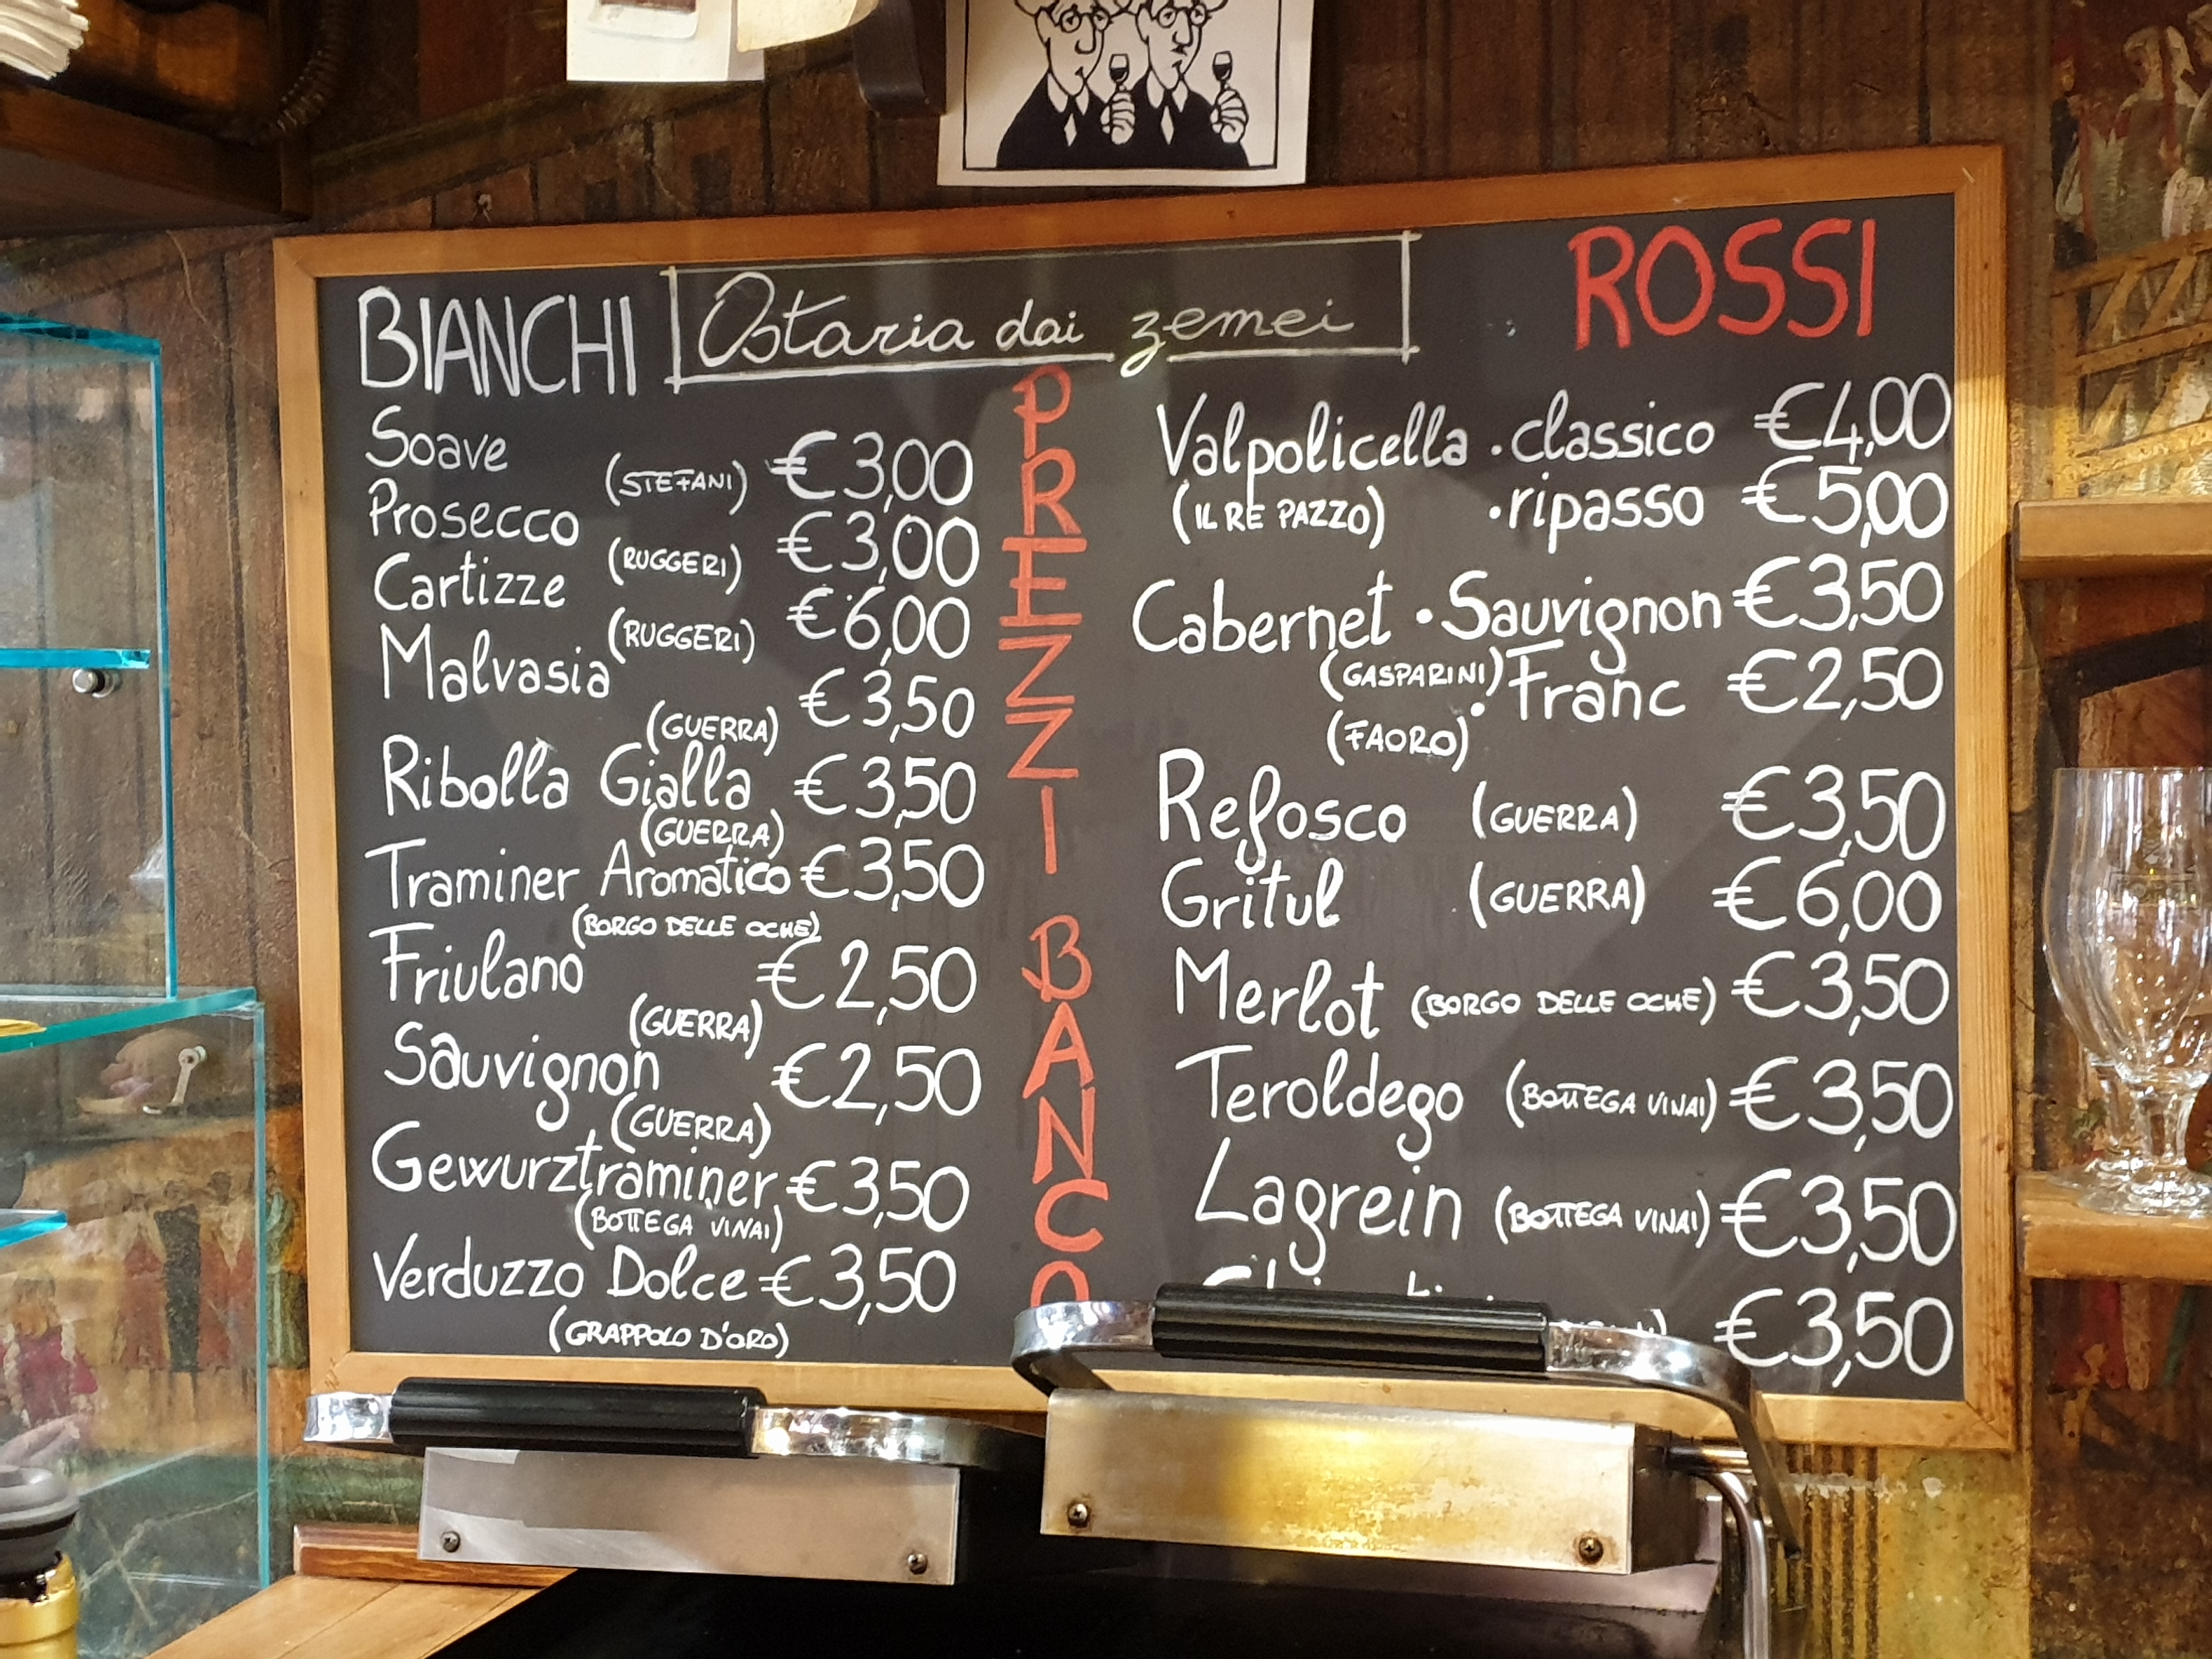 BIANCHI
Ostaria dai zemei
ROSSI
Soave (STEFANI) €3,00
Prosecco (RUGGERI) €3,00
Cartizze (RUGGERI) €6,00
Malvasia (GUERRA) €3,50
Ribolla Gialla €3,50
(GUERRA)
Traminer Aromatico €3,50
(BORGO DELLE OCHE)
Friulano €2,50
(GUERRA)
Sauvignon €2,50
(GUERRA)
Gewurztraminer €3,50
(BOTTEGA VINAI)
Verduzzo Dolce €3,50
(GRAPPOLO D'ORO)
PREZZI BANCO
Valpolicella • classico €4,00
(IL RE PAZZO) • ripasso €5,00
Cabernet • Sauvignon €3,50
(GASPARINI)
• Franc €2,50
(FAORO)
Refosco (GUERRA) €3,50
Gritul (GUERRA) €6,00
Merlot (BORGO DELLE OCHE) €3,50
Teroldego (BOTTEGA VINAI) €3,50
Lagrein (BOTTEGA VINAI) €3,50
€3,50